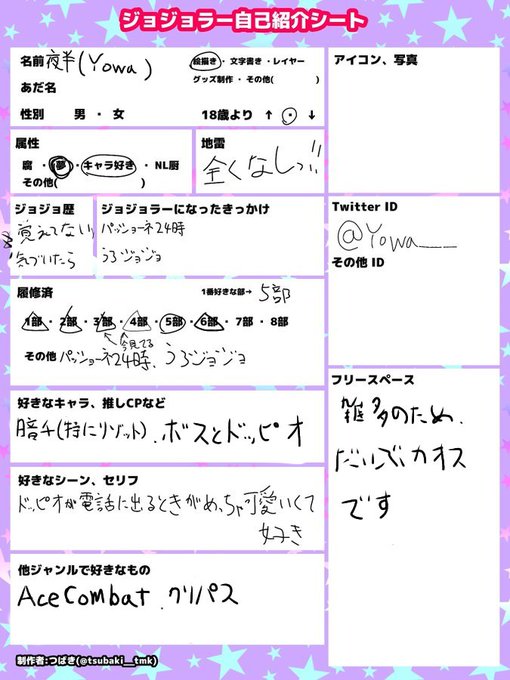 ジョジョラー自己紹介シート
名前 夜半(Yowa)
絵描き・文字書き・レイヤー
グッズ制作・その他( )
あだ名
性別 男・女
18歳より ↑ ・ ↓
属性
腐・夢・キャラ好き・NL厨
その他( )
地雷
全くなしっ!!
ジョジョ歴
覚えてない
気づいたら
ジョジョラーになったきっかけ
パッショーネ24時
うろジョジョ
履修済
1番好きな部→ 5部
1部・2部・3部・4部・5部・6部・7部・8部
今見てる
その他 パッショーネ24時、うろジョジョ
好きなキャラ、推しCPなど
暗チ(特にリゾット)、ボスとドッピオ
好きなシーン、セリフ
ドッピオが電話に出るときがめっちゃ可愛いくて
好き
他ジャンルで好きなもの
AceCombat、クリパス
制作者:つばき(@tsubaki__tmk)
アイコン、写真
Twitter ID
@Yowa___
その他 ID
フリースペース
雑多のため、
だいぶカオス
です